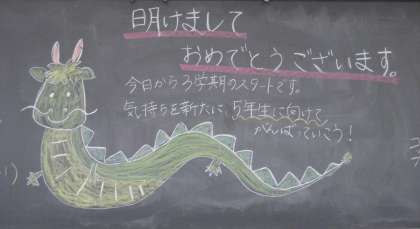 明けまして
おめでとうございます。
今日から3学期のスタートです。
気持ちを新たに、5年生に向けて
がんばっていこう!